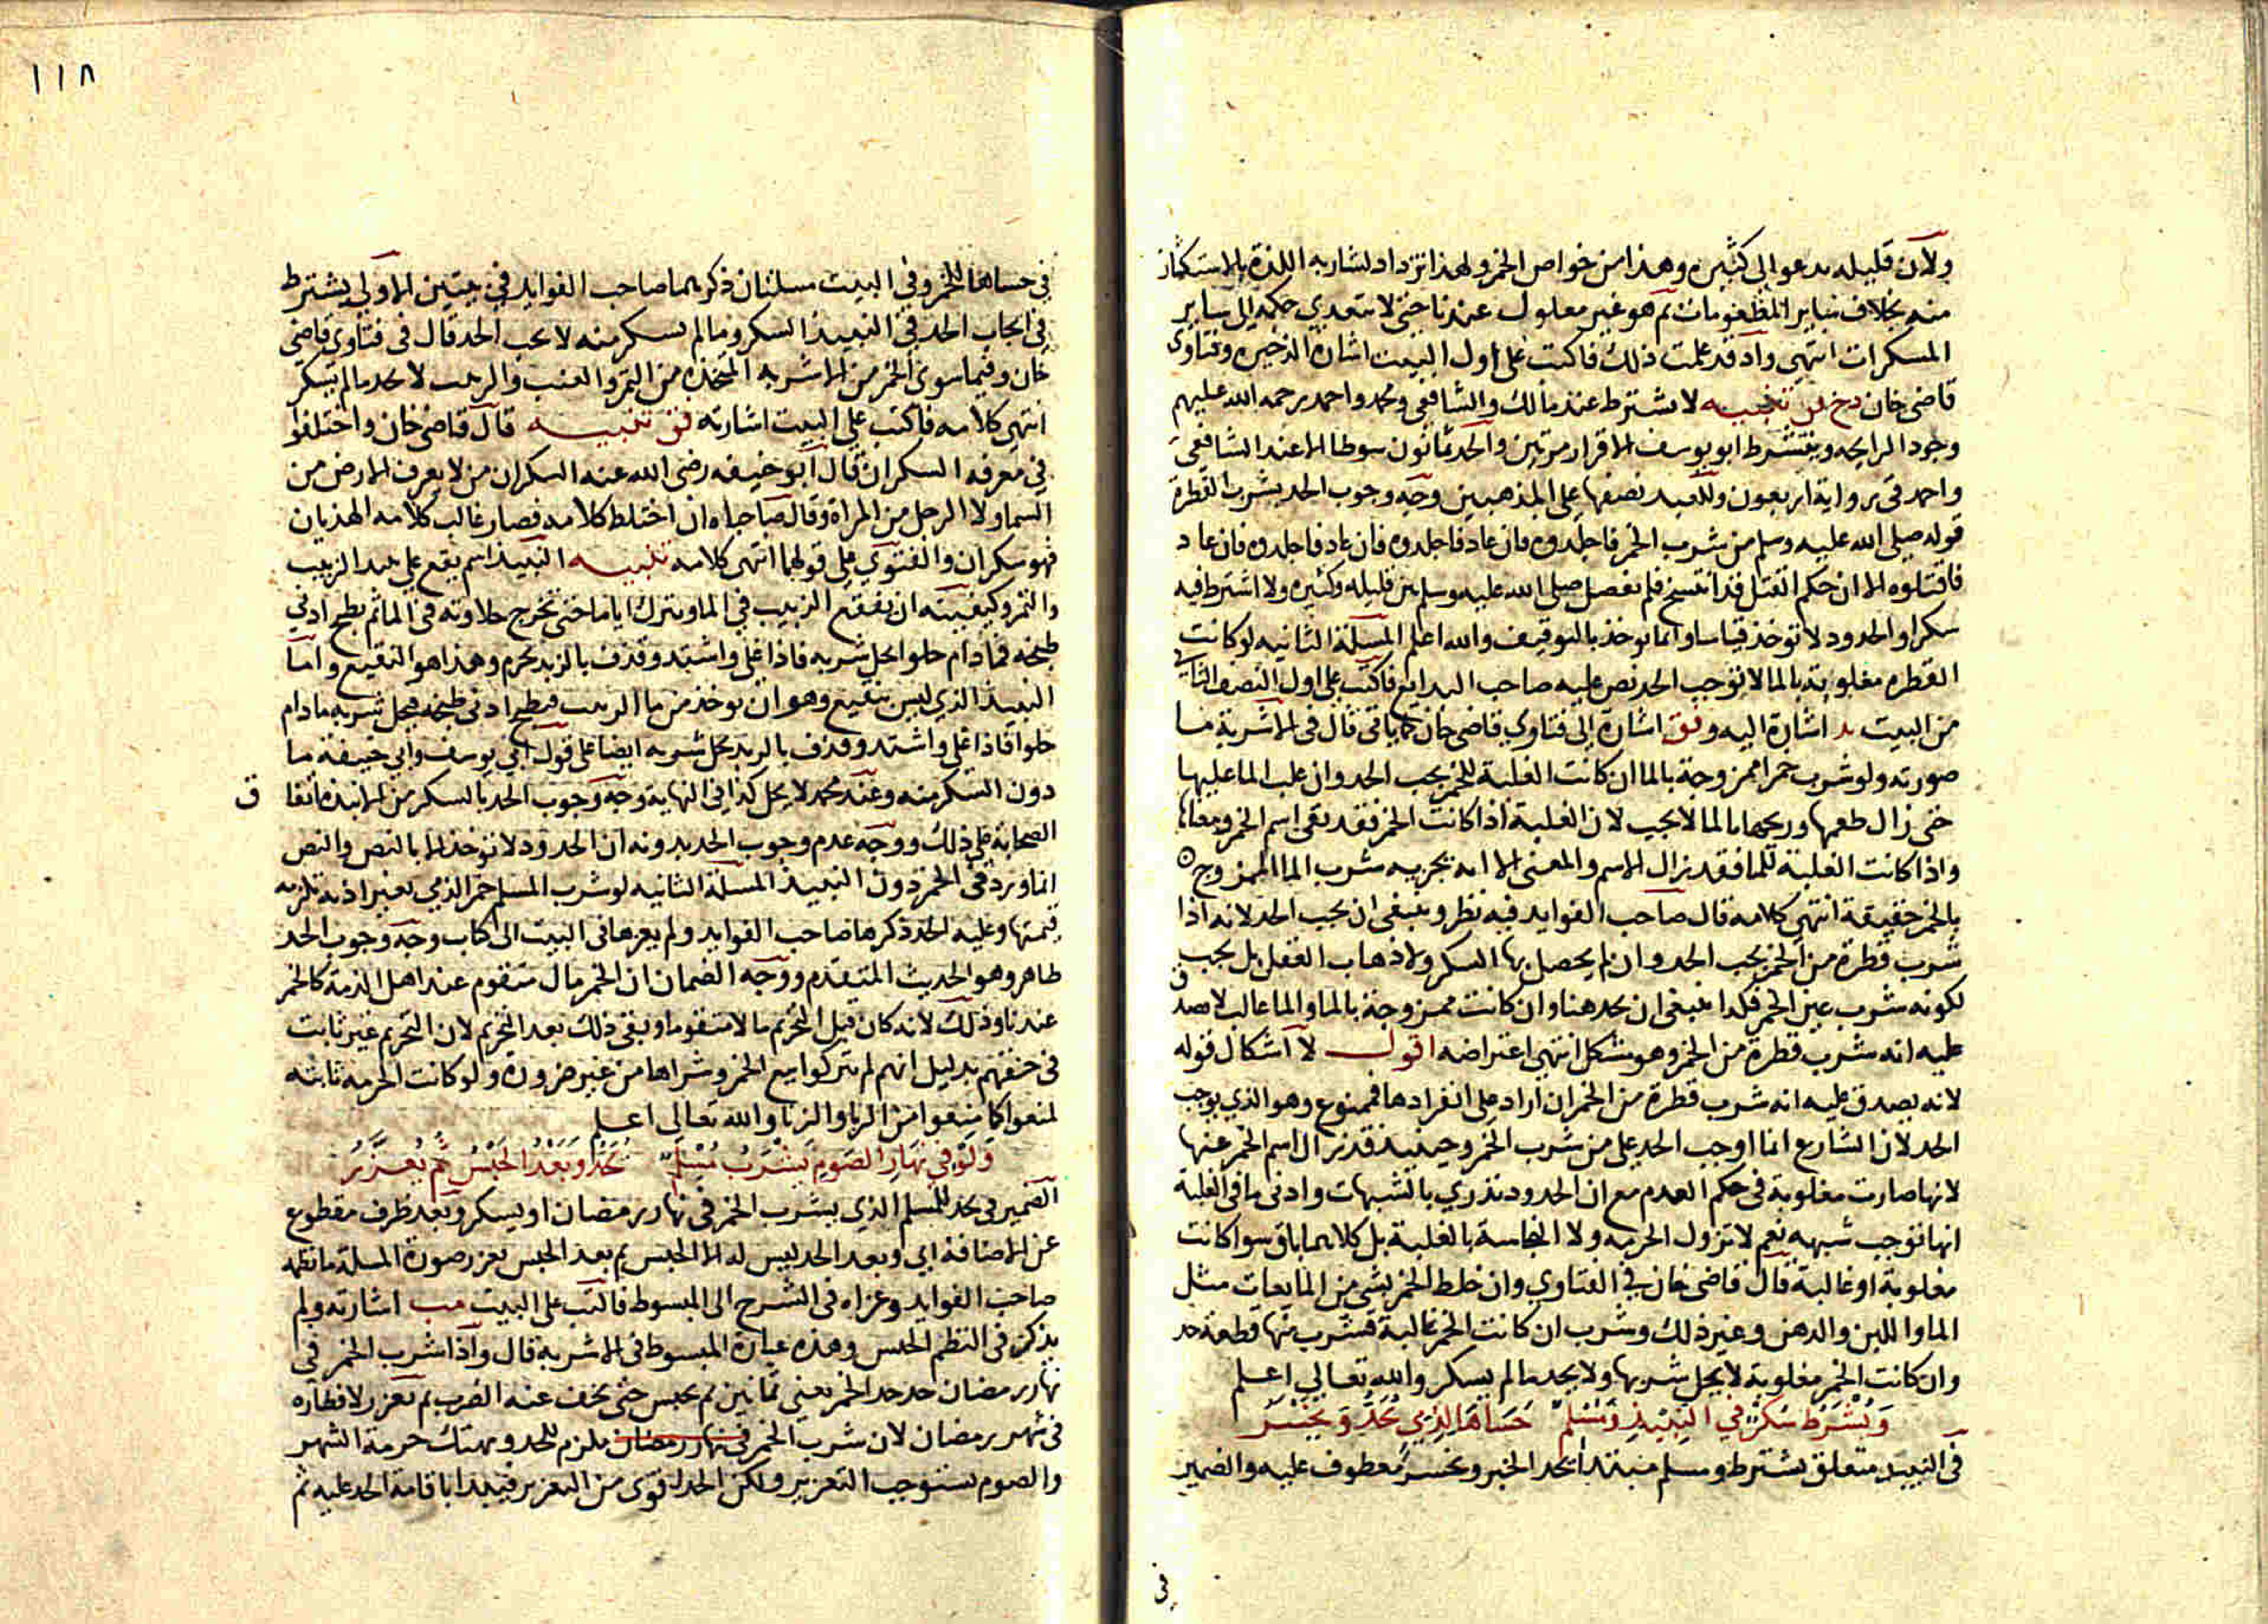 ولان قليله يدعو الى كثيره وهذا من خواص الخمر ولهذا تزداد لشاربه اللذة بالاستكثار
منه بخلاف سائر المطعومات ثم هو غير معلول عندنا حتى لا يتعدي حكمه الى ساير
المسكرات انتهى واذ قد علمت ذلك فاكتب على اول البيت اشارة الذخيره وفتاوى
قاضي خان دخ تنبيه لا يشترط عند مالك والشافعي ومحمد واحمد رحمه الله عليهم
وجود الرايحه ويشترط ابو يوسف الاقرار مرتين والحد ثمانون سوطا الا عند الشافعي
واحمد في رواية اربعون وللعبد نصفها على المذهبين وجه وجوب الحد بشرب القطرة
قوله صلى الله عليه وسلم من شرب الخمر فاجلدوه فان عاد فاجلدوه فان عاد فاجلدوه فان عاد
فاقتلوه الا ان حكم القتل قد انتسخ فلم يفصل صلى الله عليه وسلم بين قليله وكثيره ولا اشترط فيه
سكرا والحدود لا توخذ قياسا وانما توخذ بالتوقيف والله اعلم المسئلة الثانيه لو كانت
القطره مغلوبة بالما لا توجب الحد نص عليه صاحب البدايع فاكتب على اول النصف الثاني
من البيت بد اشارة اليه وفق اشارة الى فتاوي قاضي خان كما ياتي قال في الاشربة ما
صورته ولو شرب خمرا ممزوجة بالما ان كانت الغلبة للخمر يجب الحد وان غلب الما عليها
حتى زال طعمها وريحها بالما لا يجب لان الغلبة اذا كانت الخمر فقد بقي اسم الخمر ومعناها
واذا كانت الغلبة للما فقد زال الاسم والمعنى الا انه يحرم شرب الما الممزوج
بالخمر حقيقة انتهى كلامه قال صاحب الفوايد فيه نظر وينبغي ان يجب الحد لانه اذا
شرب قطرة من الخمر يجب الحد وان لم يحصل بها السكر ولا ذهاب العقل بل يجب
لكونه شرب عين الخمر فكذا ينبغي ان يحد هنا وان كانت ممزوجة بالما والما غالب لانه صدق
عليه انه شرب قطرة من الخمر وهو مشكل انتهى اعتراضه اقول لا اشكال قوله
لانه يصدق عليه انه شرب قطرة من الخمر ان اراد على انفرادها فممنوع وهو الذي يوجب
الحد لان الشارع انما اوجب الحد على من شرب الخمر وحينئذ قد زال اسم الخمر عنها
لانها صارت مغلوبة في حكم العدم مع ان الحدود تندري بالشبهات وادنى ما في الغلبة
انها توجب شبهه نعم لا تزول الحرمه ولا النجاسة بالغلبة بل كلاهما باق سوا كانت
مغلوبة او غالبة قال قاضي خان في الفتاوي وان خلط الخمر بشي من المايعات مثل
الما واللبن والدهن وغير ذلك وشرب ان كانت الخمر غالبة فشرب منها قطعة حد
وان كانت الخمر مغلوبة لا يحل شربها ولا يحد ما لم يسكر والله تعالى اعلم
وَيُشْرَط سُكْرٌ في النَّبِيْذِ وَمُسْلِمٌ حَسَاهَا لِذِمِّي يُحَدُّ وَيُخَسَّرُ
في النبيذ متعلق بشترط ومسلم مبتدا يحد الخبر ويخسر معطوف عليه والضمير
في
١١٨
في حساها للخمر وفي البيت مسئلتان ذكرهما صاحب الفوايد في بيتين الاولى يشترط
في ايجاب الحد في النبيذ السكر وما لم يسكر منه لا يجب الحد قال في فتاوي قاضي
خان وفيما سوى الخمر من الاشربه المتخذة من التمر والعنب والزبيب لا يحد ما لم يسكر
انتهى كلامه فاكتب على البيت اشارته فق تنبيه قال قاضي خان واختلفوا
في معرفة السكران قال ابو حنيفه رضى الله عنه السكران من لا يعرف الارض من
السما ولا الرجل من المراة وقال صاحباه ان اختلط كلامه فصار غالب كلامه الهذيان
فهو سكران والفتوي على قولهما انتهى كلامه تنبيه النبيذ اسم يقع على نبيذ الزبيب
والتمر وكيفيته ان ينقع الزبيب في الما ويترك اياما حتى تخرج حلاوته في الما ثم يطبخ ادنى
طبخه فما دام حلوا يحل شربه فاذا غلى واشتد وقذف بالزبد يحرم وهذا هو النقيع واما
النبيذ الذي ليس بنقيع وهو ان يوخذ من ما الزبيب فيطبخ ادنى طبخه فيحل شربه ما دام
حلوا فاذا غلى واشتد وقذف بالزبد يحل شربه ايضا على قول ابي يوسف وابي حنيفة ما
دون السكر منه وعند محمد لا يحل كذا في النهاية وجه وجوب الحد بالسكر من الانبذة اتفاق
الصحابة على ذلك ووجه عدم وجوب الحد بدونه ان الحدود لا توخذ الا بالنص والنص
انما ورد في الخمر دون النبيذ المسئلة الثانيه لو شرب المسلم خمر الذمي بغير اذنه تلزمه
قيمتها وعليه الحد ذكرها صاحب الفوايد ولم يعزها في البيت الى كتاب وجه وجوب الحد
ظاهر وهو الحديث المتقدم ووجه الضمان ان الخمر مال متقوم عند اهل الذمة كالخمر
عندنا وذلك لانه كان قبل التحريم مالا متقوما وبقي ذلك بعد التحريم لان التحريم غير ثابت
في حقهم بدليل انهم لم يتركوا بيع الخمر وشراها من غير ضرورة ولو كانت الحرمة ثابته
لمنعوا كما منعوا من الربا والزنا والله تعالى اعلم
وَلَوْ في نَهَارِ الصَومِ يَشْرَبُ مُسْلِمٌ يُحَدُّ وَبَعْدُ الحَبْسُ ثُمَّ يُعَزَّرُ
الضمير في يحد للمسلم الذي يشرب الخمر في نهار رمضان او يسكر وبعد ظرف مقطوع
عن الاضافة اي وبعد الحد ليس له الا الحبس ثم بعد الحبس يعزر صورة المسئلة ما نظمه
صاحب الفوايد وعزاه في الشرح الى المبسوط فاكتب على البيت مب اشارته ولم
يذكر في النظم الحبس وهذه عبارة المبسوط في الاشربة قال واذا شرب الخمر في
نهار رمضان حد حد الخمر يعني ثمانين ثم يحبس حتى يخف عنه الضرب ثم يعزر لافطاره
في شهر رمضان لان شرب الخمر في نهار رمضان ملزم للحد ويهتك حرمة الشهر
والصوم يستوجب التعزير ولكن الحد اقوى من التعزير فيبدا باقامة الحد عليه ثم